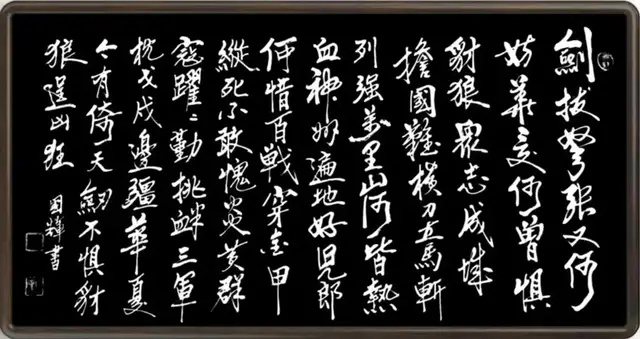 劍拔弩張又何
妨華夏何曾懼
豺狼眾志成城
擔國難橫刀立馬斬
列強萬里山河皆熱
血神州遍地好兒郎
何惜百戰穿金甲
縱死不敢愧炎黃群
寇躍〻勤挑釁三軍
枕戈戍邊疆華夏
今有倚天劍不懼豺
狼逞凶狂
國輝書